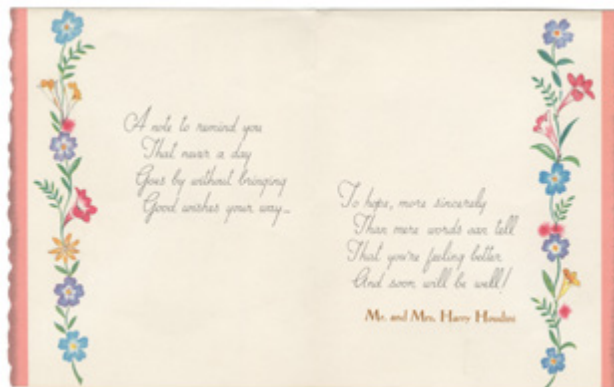 A note to remind you
That never a day
Goes by without bringing
Good wishes your way—
To hope, more sincerely
Than mere words can tell
That you're feeling better
And soon will be well!
Mr. and Mrs. Harry Houdini